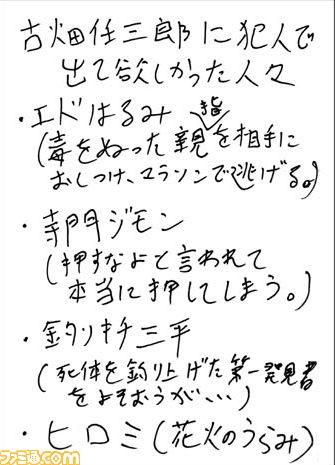 古畑任三郎に犯人で
出て欲しかった人々
・エドはるみ
(毒をぬった親指を相手に
おしつけ、マラソンで逃げる。)
・寺門ジモン
(押すなよと言われて
本当に押してしまう。)
・釣りキチ三平
(死体を釣り上げた第一発見者
をよそおうが、、、)
・ヒロミ(花火のうらみ)
ファミ通.com